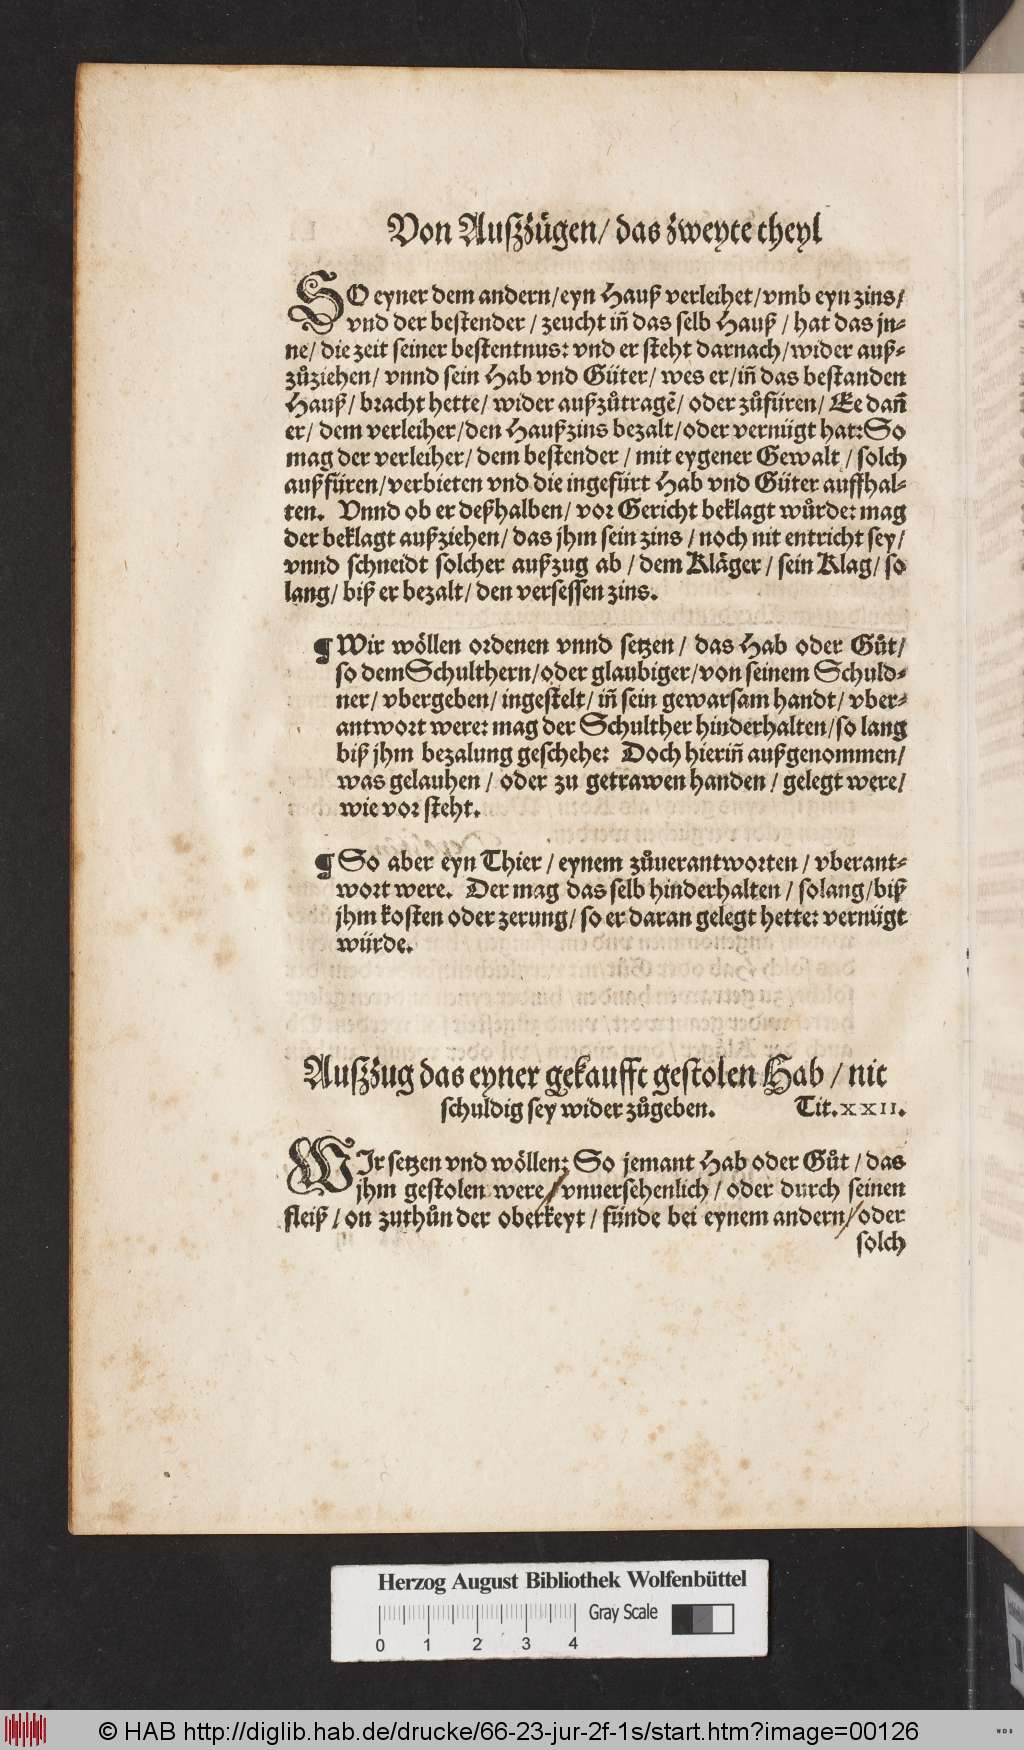 Von Außzügen/ das zweyte theyl
SO eyner dem andern/eyn Hauß verleihet/vmb eyn zins/
vnd der bestender / zeucht in̄ das selb Hauß / hat das jn⸗
ne/ die zeit seiner bestentnus: vnd er steht darnach/wider auß⸗
zůziehen/ vnnd sein Hab vnd Güter/ wes er/in̄ das bestanden
Hauß/ bracht hette/ wider außzůtragē/ oder zůfüren/ Ee dan̄
er/ dem verleiher/den Haußzins bezalt/oder vernügt hat: So
mag der verleiher/ dem bestender / mit eygener Gewalt / solch
außfüren/verbieten vnd die ingefürt Hab vnd Güter auffhal⸗
ten. Vnnd ob er deßhalben/ vor Gericht beklagt wůrde: mag
der beklagt außziehen/ das jhm sein zins / noch nit entricht sey/
vnnd schneidt solcher außzug ab / dem Kläger / sein Klag/ so
lang/ biß er bezalt/ den versessen zins.
¶ Wir wöllen ordenen vnnd setzen / das Hab oder Gůt/
so dem Schulthern/oder glaubiger/von seinem Schuld⸗
ner/ vbergeben/ ingestelt/ in̄ sein gewarsam handt/ vber⸗
antwort were: mag der Schulther hinderhalten/so lang
biß jhm bezalung geschehe: Doch hierin̄ außgenommen/
was gelauhen / oder zu getrawen handen / gelegt were/
wie vor steht.
¶ So aber eyn Thier / eynem zůuerantworten / vberant⸗
wort were. Der mag das selb hinderhalten / solang/biß
jhm kosten oder zerung/ so er daran gelegt hette: vernügt
würde.
Außzug das eyner gekaufft gestolen Hab / nit
schuldig sey wider zůgeben. Tit.XXII.
WIr setzen vnd wöllen: So jemant Hab oder Gůt / das
jhm gestolen were/ vnuersehenlich / oder durch seinen
fleiß / on zuthůn der oberkeyt / fünde bei eynem andern/ oder
solch
Herzog August Bibliothek Wolfenbüttel
Gray Scale
0 1 2 3 4
© HAB http://diglib.hab.de/drucke/66-23-jur-2f-1s/start.htm?image=00126